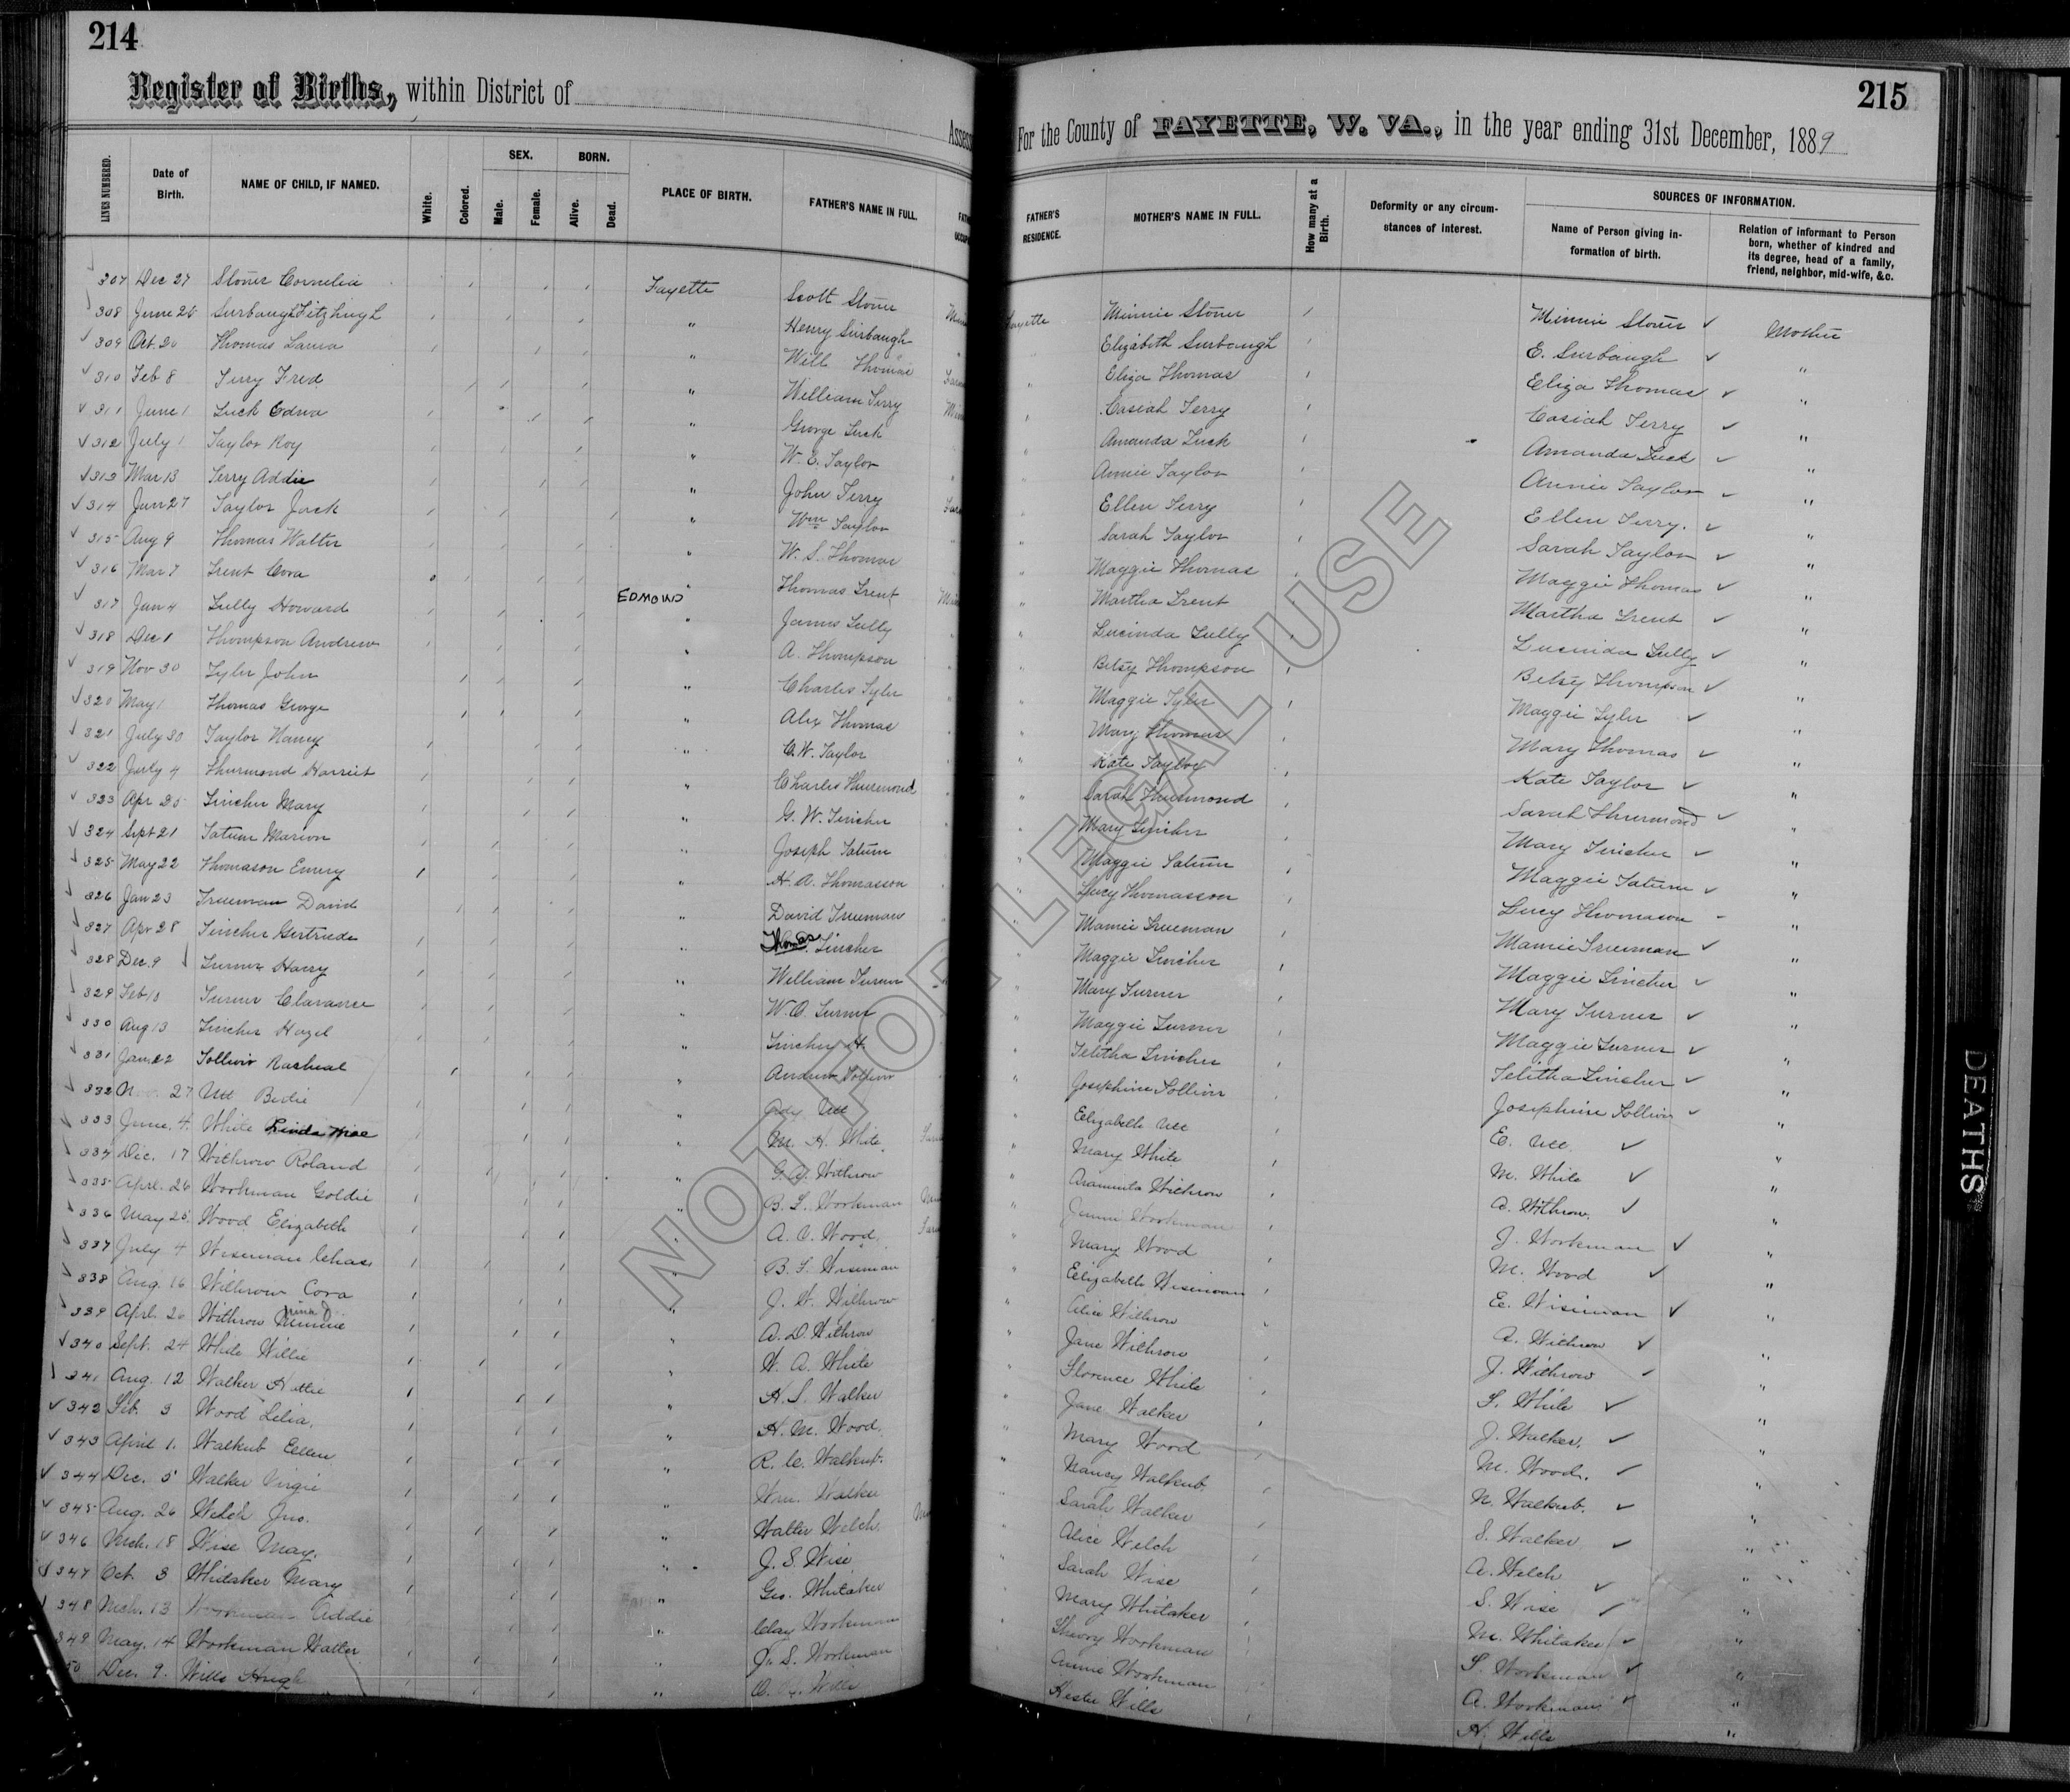 214
Register of Births, within District of
Assess
LINES NUMBERED.
Date of Birth.
NAME OF CHILD, IF NAMED.
White.
Colored.
SEX.
Male.
Female.
BORN.
Alive.
Dead.
PLACE OF BIRTH.
FATHER'S NAME IN FULL.
307 Dec 27 Stoner Cornelia Fayette Scott Stoner
308 June 26 Surbaugh Fitzhugh " Henry Surbaugh
309 Oct. 20 Thomas Laura " Will Thomas
310 Feb 8 Terry Fred " William Terry
311 June 1 Tuck Edna " George Tuck
312 July 1 Taylor Roy " W. E. Taylor
313 Mar 13 Terry Addie " John Terry
314 Jan 27 Taylor Jack " Wm Taylor
315 Aug 9 Thomas Walter " W. S. Thomas
316 Mar 7 Trent Cora " Thomas Trent
317 Jan 4 Tully Howard EDMOND " James Tully
318 Dec 1 Thompson Andrew " A. Thompson
319 Nov 30 Tyler John " Charles Tyler
320 May 1 Thomas George " Alex Thomas
321 July 30 Taylor Nancy " C. W. Taylor
322 July 4 Thurmond Harriet " Charles Thurmond
323 Apr 25 Tincher Mary " G. W. Tincher
324 Sept 21 Tatum Marion " Joseph Tatum
325 May 22 Thomason Emery " H. A. Thomasson
326 Jan 23 Trueman David " David Trueman
327 Apr 28 Tincher Gertrude " Thomas Tincher
328 Dec. 9 Turner Harry " William Turner
329 Feb 10 Turner Clarance " W. O. Turner
330 Aug 13 Tincher Hazel " Tincher H.
331 Jan 22 Tolliver Racheal " Andrew Tolliver
332 27 Utt Bedie " Utt
333 June. 4. White " M. H. White
334 Dec. 17 Withrow Roland " G. A. Withrow
335 Aprl. 26 Workman Goldie " B. L. Workman
336 May 25. Wood Elizabeth " A. C. Wood
337 July 4 Wiseman Chas " B. F. Wiseman
338 Aug. 16 Withrow Cora " J. W. Withrow
339 Aprl. 20 Withrow " A. D. Withrow
340 Sept. 24 White Willie " W. A. White
341 Aug. 12 Walker Hattie " H. S. Walker
342 Feb. 3 Wood Lelia. " H. M. Wood
343 April 1. Walkub Ellen " R. C. Walkub
344 Dec. 5 Walker Virgie " Wm. Walker
345 Aug. 26 Welch Jno. " Walter Welch
346 Mch. 18 Wise May. " J. S. Wise
347 Oct. 3 Whitaker Mary " Geo. Whitaker
348 Mch. 13 Workman Addie " Clay Workman
349 May. 14 Workman Walter " J. S. Workman
50 Dec. 9. Wills Hugh " Wills
215
For the County of FAYETTE, W. VA., in the year ending 31st December, 1889
FATHER'S RESIDENCE.
MOTHER'S NAME IN FULL.
How many at a Birth.
Deformity or any circumstances of interest.
SOURCES OF INFORMATION.
Name of Person giving information of birth.
Relation of informant to Person born, whether of kindred and its degree, head of a family, friend, neighbor, mid-wife, &c.
Fayette Minnie Stoner Minnie Stoner Mother
Elizabeth Surbaugh E. Surbaugh "
Eliza Thomas Eliza Thomas "
Casiah Terry Casiah Terry "
Amanda Tuck Amanda Tuck "
Annie Taylor Annie Taylor "
Ellen Terry Ellen Terry. "
Sarah Taylor Sarah Taylor "
Maggie Thomas Maggie Thomas "
Martha Trent Martha Trent "
Lucinda Tully Lucinda Tully "
Betsy Thompson Betsy Thompson "
Maggie Tyler Maggie Tyler "
Mary Thomas Mary Thomas "
Kate Taylor Kate Taylor "
Sarah Thurmond Sarah Thurmond "
Mary Tincher Mary Tincher "
Maggie Tatum Maggie Tatum "
Lucy Thomasson Lucy Thomason "
Mamie Trueman Mamie Trueman "
Maggie Tincher Maggie Tincher "
Mary Turner Mary Turner "
Maggie Turner Maggie Turner "
Telitha Tincher Telitha Tincher "
Josephine Tolliver Josephine Tolliver "
Elizabeth Utt E. Utt "
Mary White M. White "
Araminta Withrow A. Withrow. "
Jennie Workman J. Workman "
Mary Wood M. Wood "
Elizabeth Wiseman E. Wiseman "
Alice Withrow A. Withrow "
Jane Withrow J. Withrow "
Florence White F. White "
Jane Walker J. Walker. "
Mary Wood M. Wood. "
Nancy Walkub N. Walkub. "
Sarah Walker S. Walker "
Alice Welch A. Welch "
Sarah Wise S. Wise "
Mary Whitaker M. Whitaker "
Workman S. Workman "
Annie Workman A. Workman "
Hester Wills H. Wills "
NOT FOR LEGAL USE
DEATHS